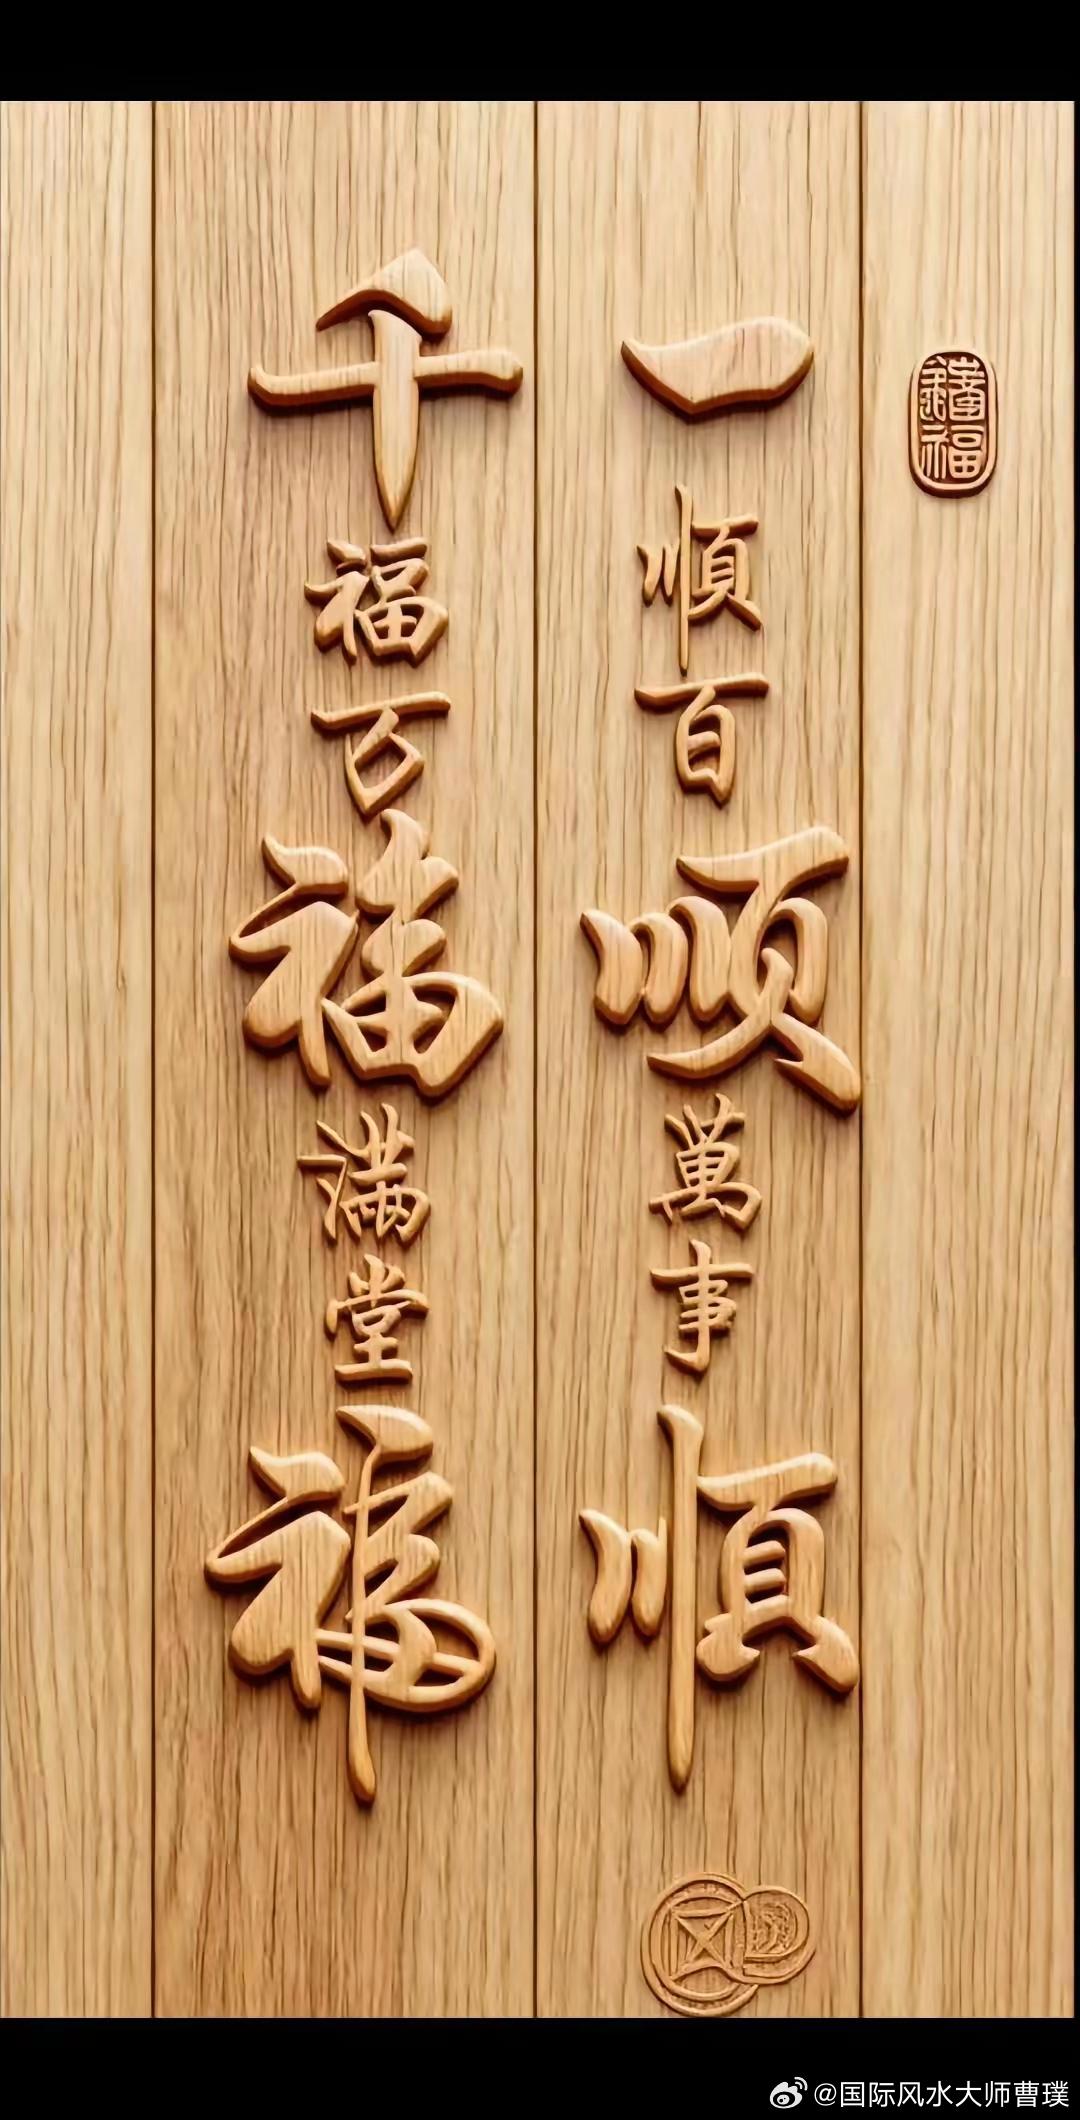 一順百顺萬事順
千福万福满堂福
@国际风水大师曹璞